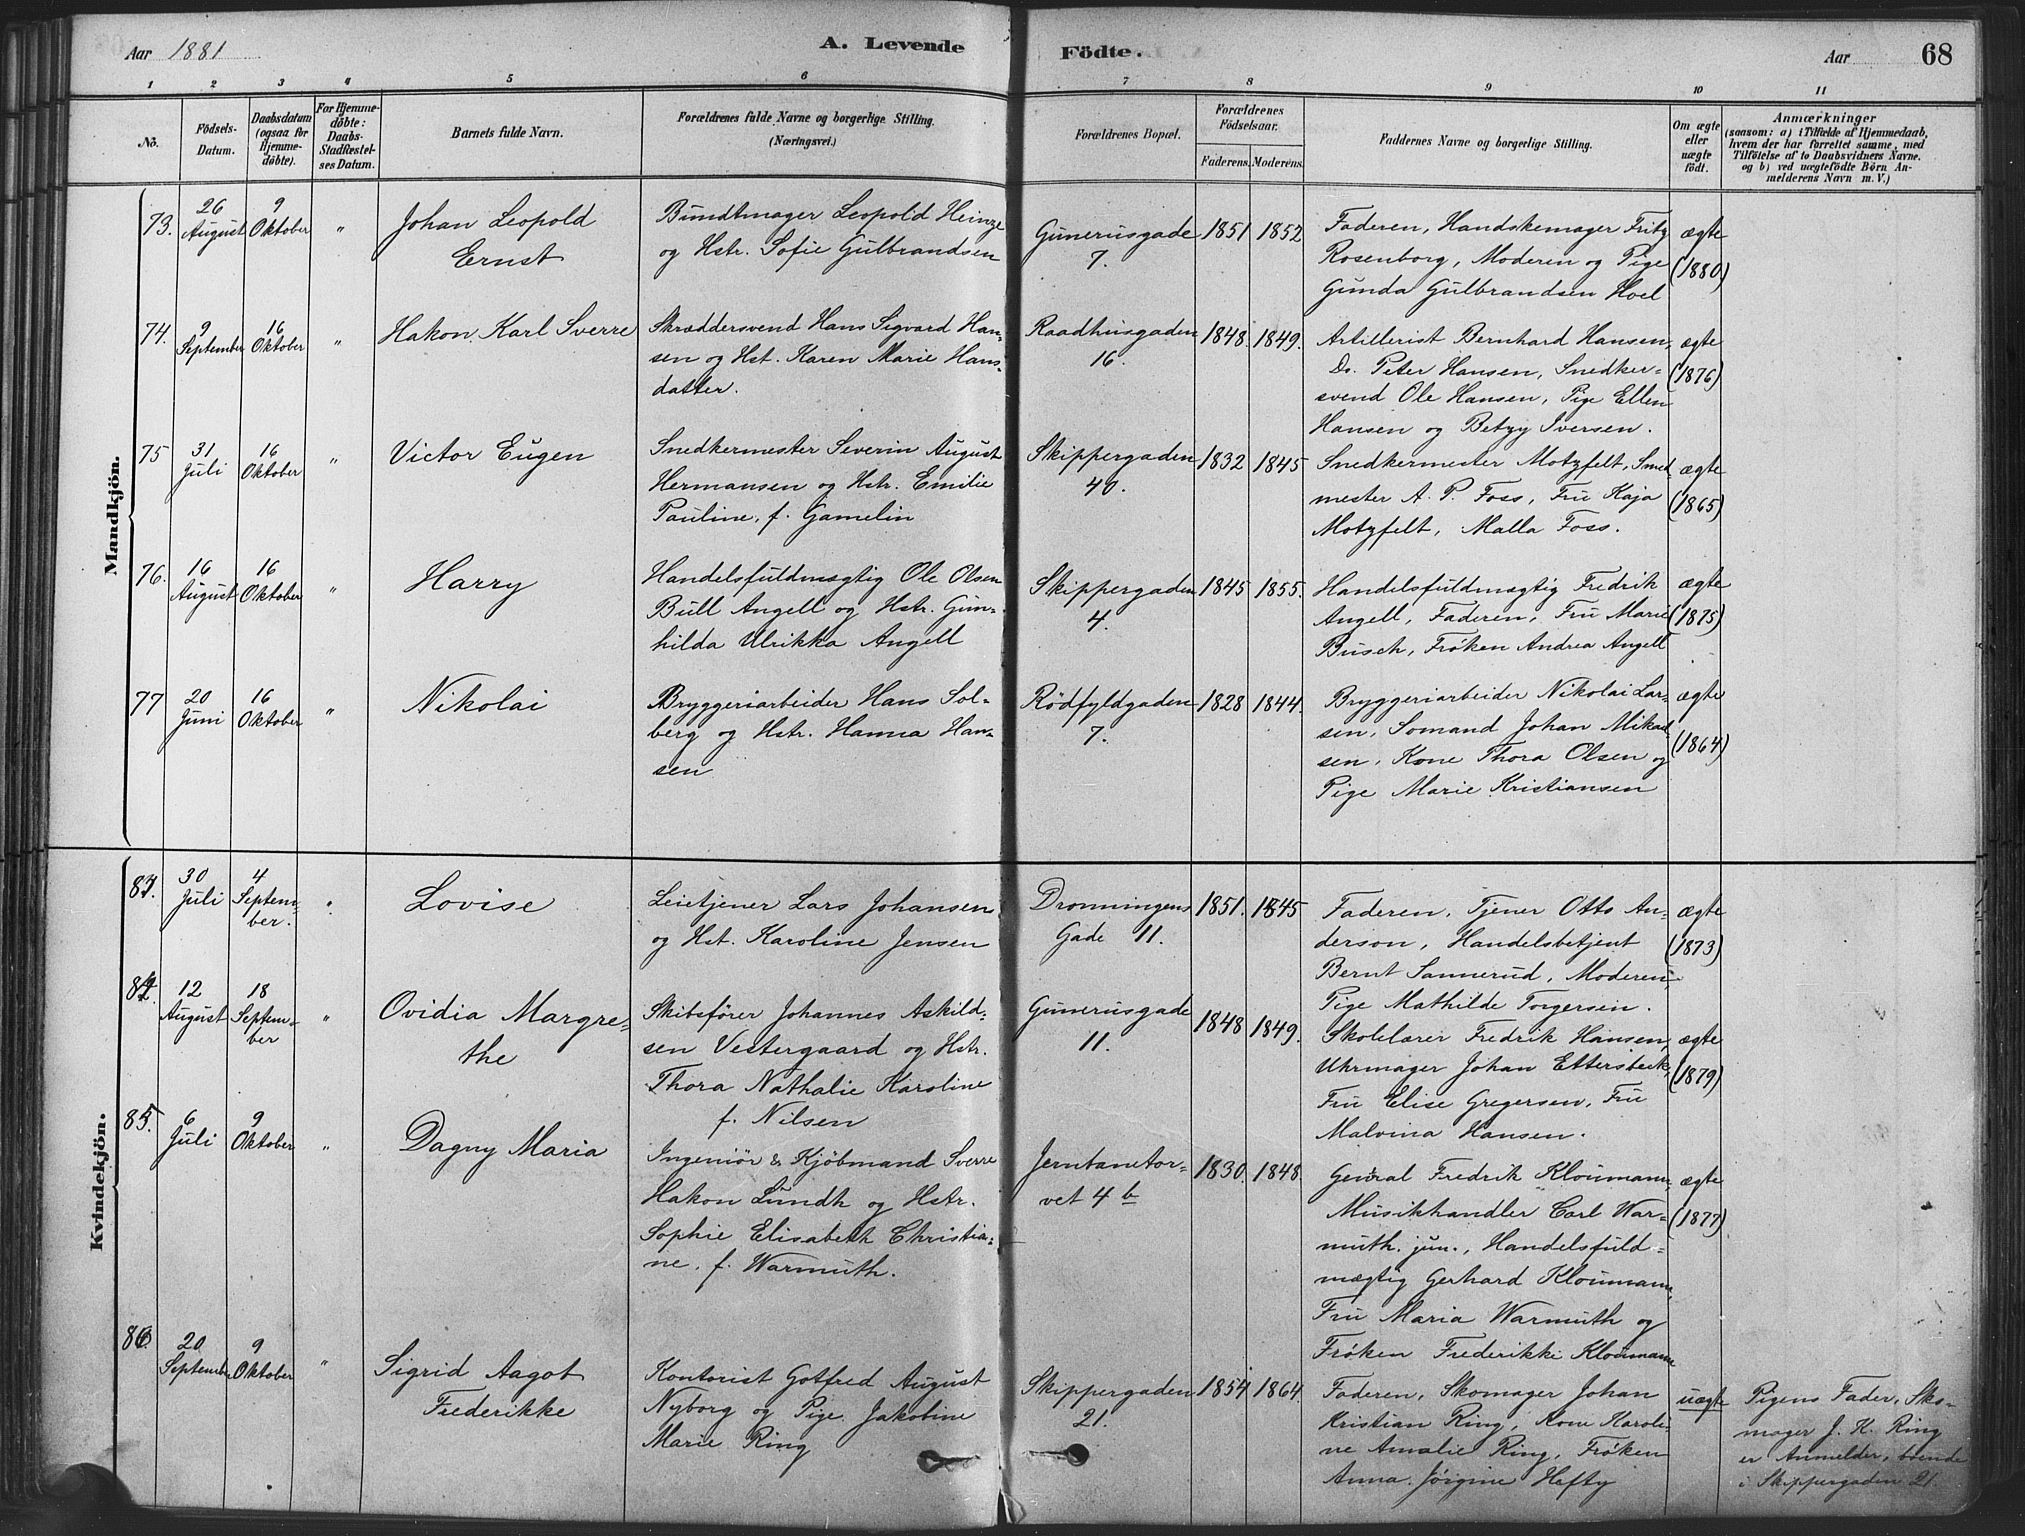 Aar 1881
A. Levende Födte.
Aar
68
1 2 3 4 5 6 7 8 9 10 11
No.
Födsels-Datum.
Daabsdatum (ogsaa for Hjemme-döbte).
For Hjemme-döbte: Daabs-Stadfæstel-ses Datum.
Barnets fulde Navn.
Forældrenes fulde Navne og borgerlige Stilling. (Næringsvei.)
Forældrenes Bopæl.
Forældrenes Födselsaar.
Faderens. Moderens.
Faddernes Navne og borgerlige Stilling.
Om ægte eller uægte födt.
Anmærkninger
(saasom: a) i Tilfælde af Hjemmedaab,
hvem der har forrettet samme, med
Tilföielse af to Daabsvidners Navne.
og b) ved uægtefödte Börn An-
melderens Navn m. V.)
Mandkjön.
73. 26 August 9 Oktober "
Johan Leopold
Ernst
Bundtmager Leopold Heinze
og Hstr. Sofie Gulbrandsen
Gunerusgade
7.
1851 1852
Faderen, Handskemager Fritz
Rosenborg, Moderen og Pige
Gunda Gulbrandsen Hoel
ægte
(1880)
74. 9 September 16 Oktober "
Hakon Karl Sverre
Skræddersvend Hans Sigvard Han-
sen og Hst. Karen Marie Hans-
datter.
Raadhusgaden
16.
1848. 1849.
Artillerist Bernhard Hansen,
Do. Peter Hansen, Snedker-
svend Ole Hansen, Pige Ellen
Hansen og Betzy Iversen.
ægte
(1876)
75 31 Juli 16 Oktober "
Victor Eugen
Snedkermester Severin August
Hermansen og Hstr. Emilie
Pauline, f. Gamelin
Skippergaden
40.
1832 1845
Snedkermester Motzfelt, Smed-
mester A. P. Foss, Fru Kaja
Motzfelt, Malla Foss.
ægte
(1865)
76. 16 August 16 Oktober "
Harry
Handelsfuldmægtig Ole Olsen
Bull Angell og Hstr. Gun-
hilda Ulrikka Angell
Skippergaden
4.
1845 1855.
Handelsfuldmægtig Fredrik
Angell, Faderen, Fru Marie
Busch, Frøken Andrea Angell
ægte
(1875)
77 20 Juni 16 Oktober "
Nikolai
Bryggeriarbeider Hans Sol-
berg og Hstr. Hanna Han-
sen
Rödfyldgaden
7.
1828 1844.
Bryggeriarbeider Nikolai Lar-
sen, Somand Johan Mikal-
sen, Kone Thora Olsen og
Pige Marie Kristiansen
ægte
(1864)
Kvindekjön.
30 Juli 4 Septem-
ber. "
Lovise
Leietjener Lars Johansen
og Hst. Karoline Jensen
Dronningens
Gade 11.
1851. 1845
Faderen, Tjener Otto An-
derson, Handelsbetjent
Bernt Sannerud, Moderen,
Pige Mathilde Torgersen.
ægte
(1873)
84. 12 August 18 Septem-
ber "
Ovidia Margre-
the
Skibsfører Johannes Askild-
sen Vestergaard og Hstr.
Thora Nathalie Karoline
f. Nilsen
Gunerusgade
11.
1848 1849.
Skolelærer Fredrik Hansen,
Uhrmager Johan Ettersbeck,
Fru Elise Gregersen, Fru
Malvina Hansen.
ægte
(1879)
85. 6 Juli 9 Oktober "
Dagny Maria
Ingeniør & Kjöbmand Sverre
Hakon Lundh og Hstr.
Sophie Elisabeth Christia-
ne, f. Warmuth.
Jerntanetor-
vet 4 b
1830. 1848.
General Fredrik Kloumann,
Musikhandler Carl War-
muth. jun., Handelsfuld-
mægtig Gerhard Kloumann,
Fru Maria Warmuth og
Frøken Frederikke Kloumann
ægte
(1877)
86. 20 September 9 Oktober "
Sigrid Aagot
Frederikke
Kontorist Gotfred August
Nyborg og Pige Jakobine
Marie Ring
Skippergaden
21.
1854 1864.
Faderen, Skomager Johan
Kristian Ring, Kone Karoli-
ne Amalie Ring, Frøken
Anna Jörgine Hefty
uægte
Pigens Fader, Sko-
mager J. K. Ring
er Anmelder, boende
i Skippergaden 21.